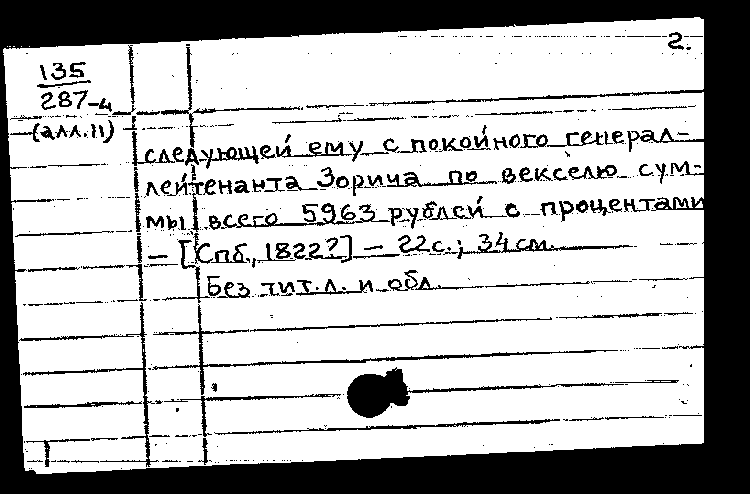 2.
135
287-4
(алл.11)
следующей ему с покойного генерал-
лейтенанта Зорича по векселю сум-
мы всего 5963 рублей с процентами
— [Спб., 1822?] — 22с.; 34 см.
Без тит.л. и обл.